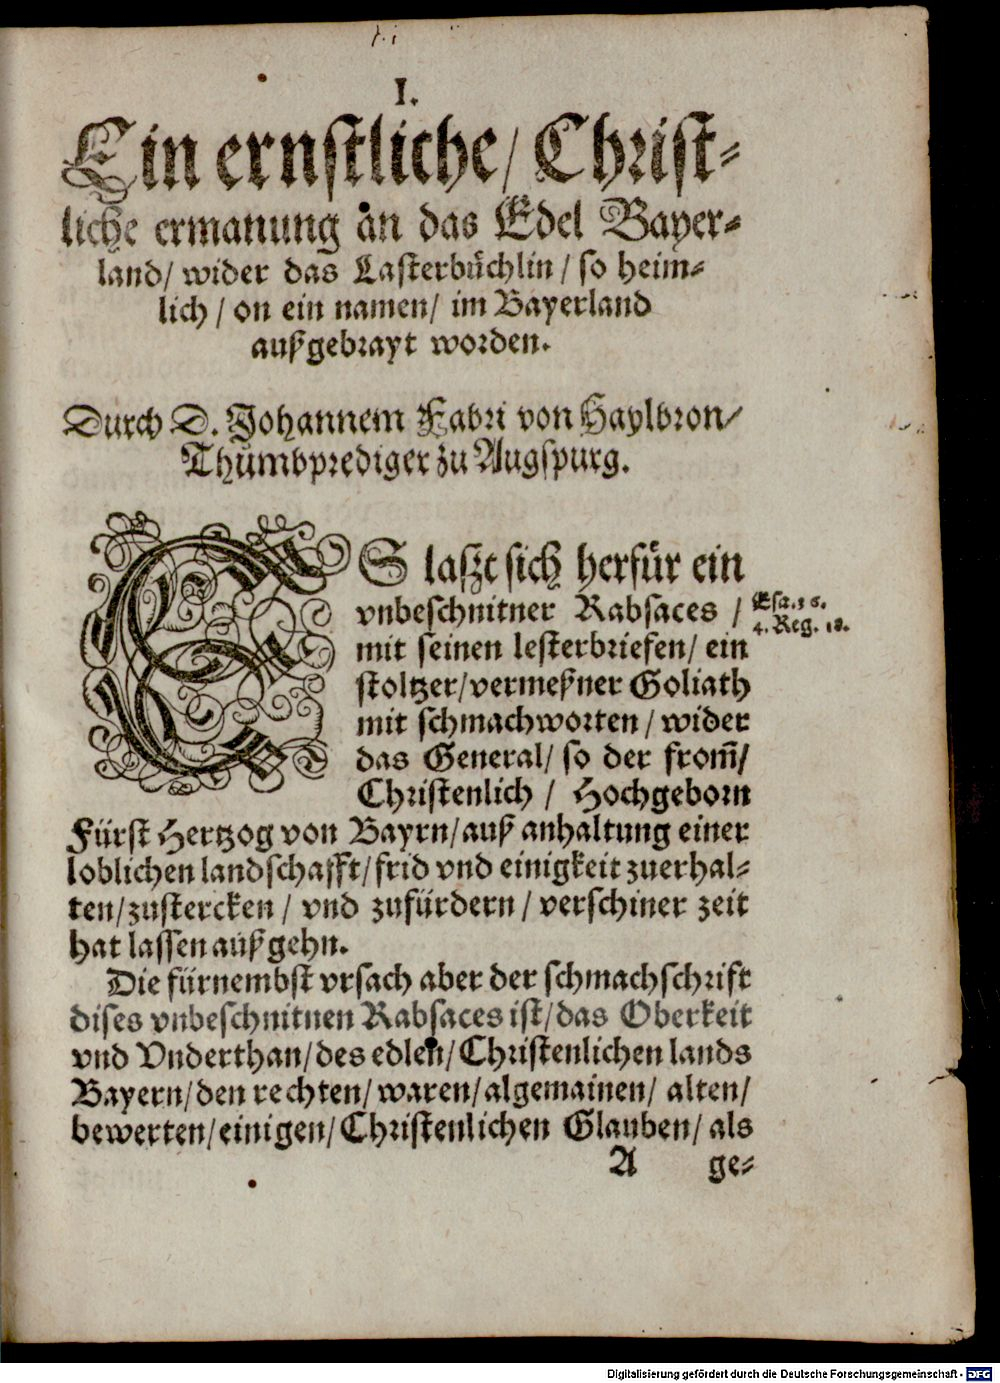 I.
Ein ernstliche/ Christ-
liche ermanung an das Edel Bayer-
land/ wider das Lasterbüchlin/ so heim-
lich/ on ein namen/ im Bayerland
außgebrayt worden.
Durch D. Johannem Fabri von Haylbron/
Thůmbprediger zu Augspurg.
ES laszt sich herfür ein
vnbeschnitner Rabsaces /
Esa. 36.
4. Reg. 18.
mit seinen lesterbriefen/ ein
stoltzer/ vermeßner Goliath
mit schmachworten/ wider
das General/ so der from̃/
Christenlich / Hochgeborn
Fürst Hertzog von Bayrn/ auß anhaltung einer
loblichen landschafft/ frid vnd einigkeit zuerhal-
ten/ zustercken / vnd zufürdern/ verschiner zeit
hat lassen außgehn.
Die fürnembst vrsach aber der schmachschrift
dises vnbeschnitnen Rabsaces ist/ das Oberkeit
vnd Vnderthan/ des edlen/ Christenlichen lands
Bayern/ den rechten/ waren/ algemainen/ alten/
bewerten/ einigen/ Christenlichen Glauben/ als
A ge-
Digitalisierung gefördert durch die Deutsche Forschungsgemeinschaft - DFG